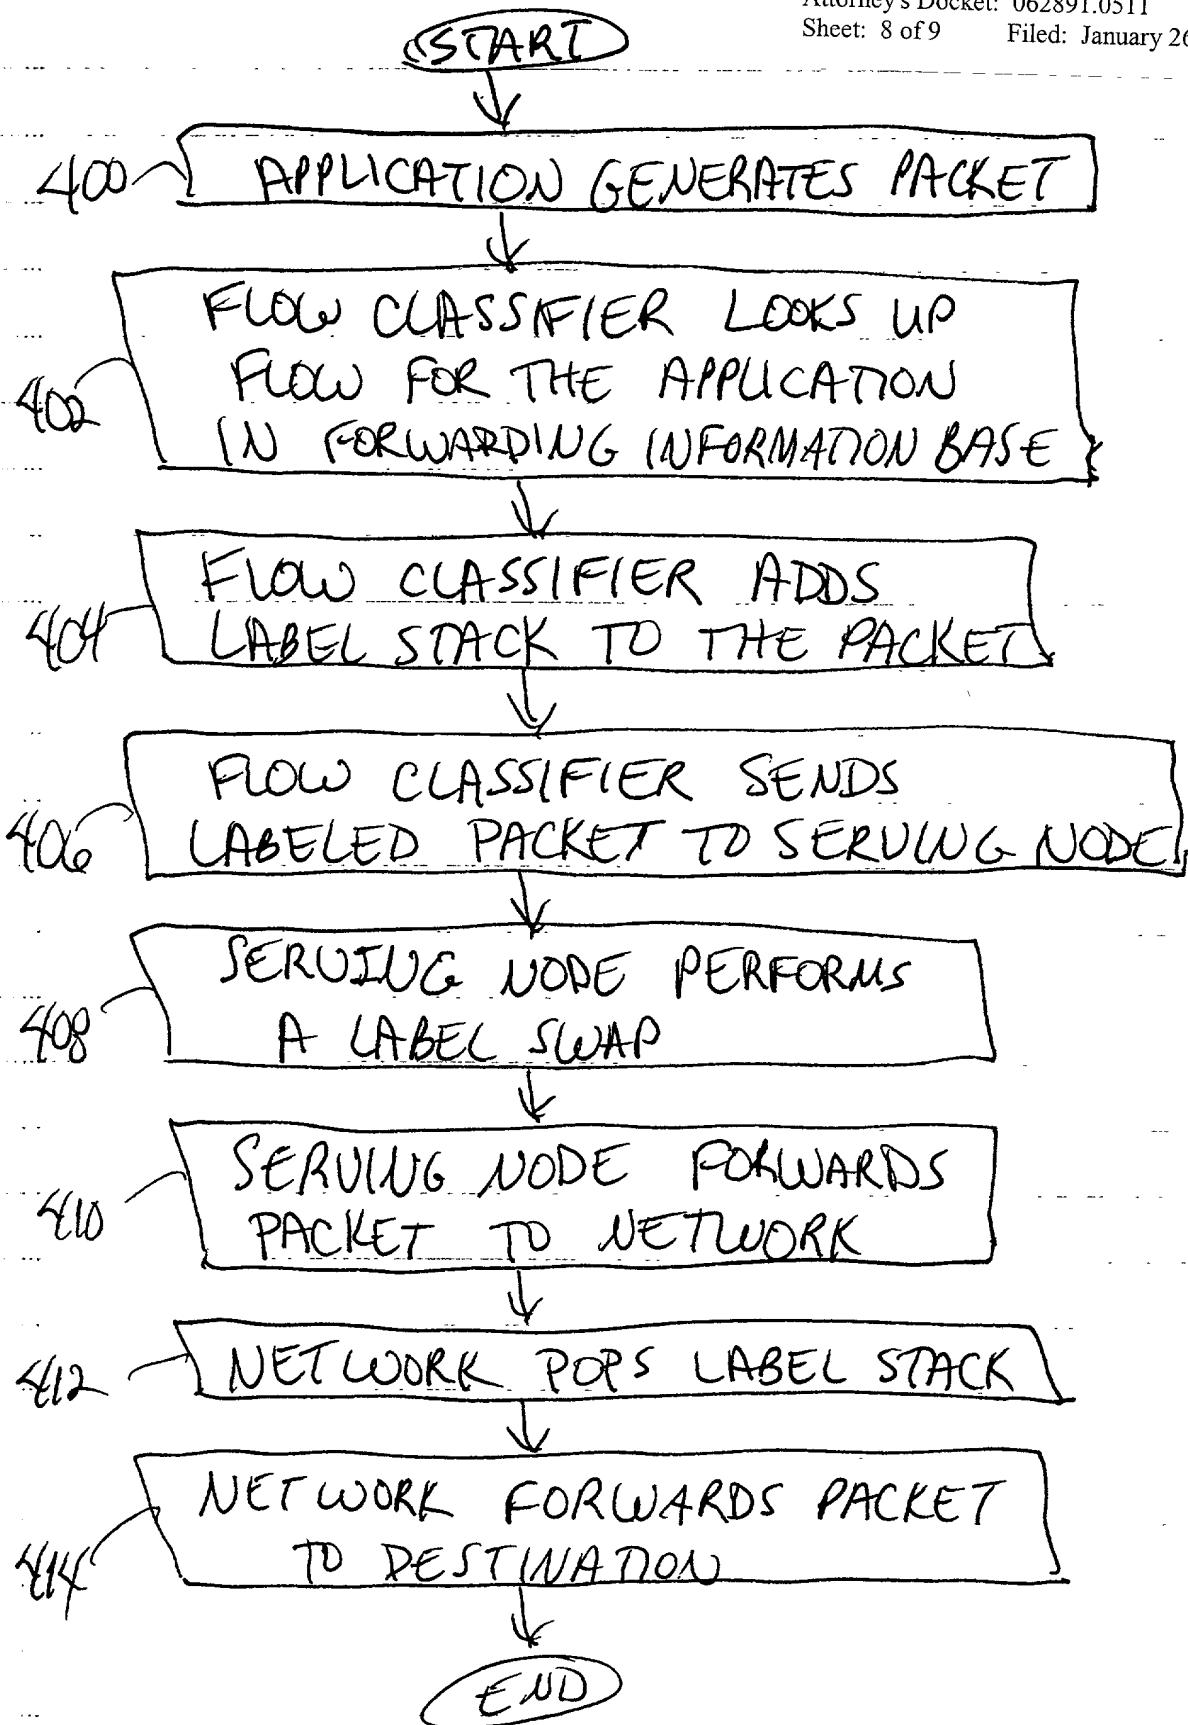 Attorney's Docket: 062891.0511
Sheet: 8 of 9 Filed: January 26
START
400 APPLICATION GENERATES PACKET
FLOW CLASSIFIER LOOKS UP
402 FLOW FOR THE APPLICATION
IN FORWARDING INFORMATION BASE
FLOW CLASSIFIER ADDS
404 LABEL STACK TO THE PACKET
FLOW CLASSIFIER SENDS
406 LABELED PACKET TO SERVING NODE
SERVING NODE PERFORMS
408 A LABEL SWAP
SERVING NODE FORWARDS
410 PACKET TO NETWORK
412 NETWORK POPS LABEL STACK
NETWORK FORWARDS PACKET
414 TO DESTINATION
END